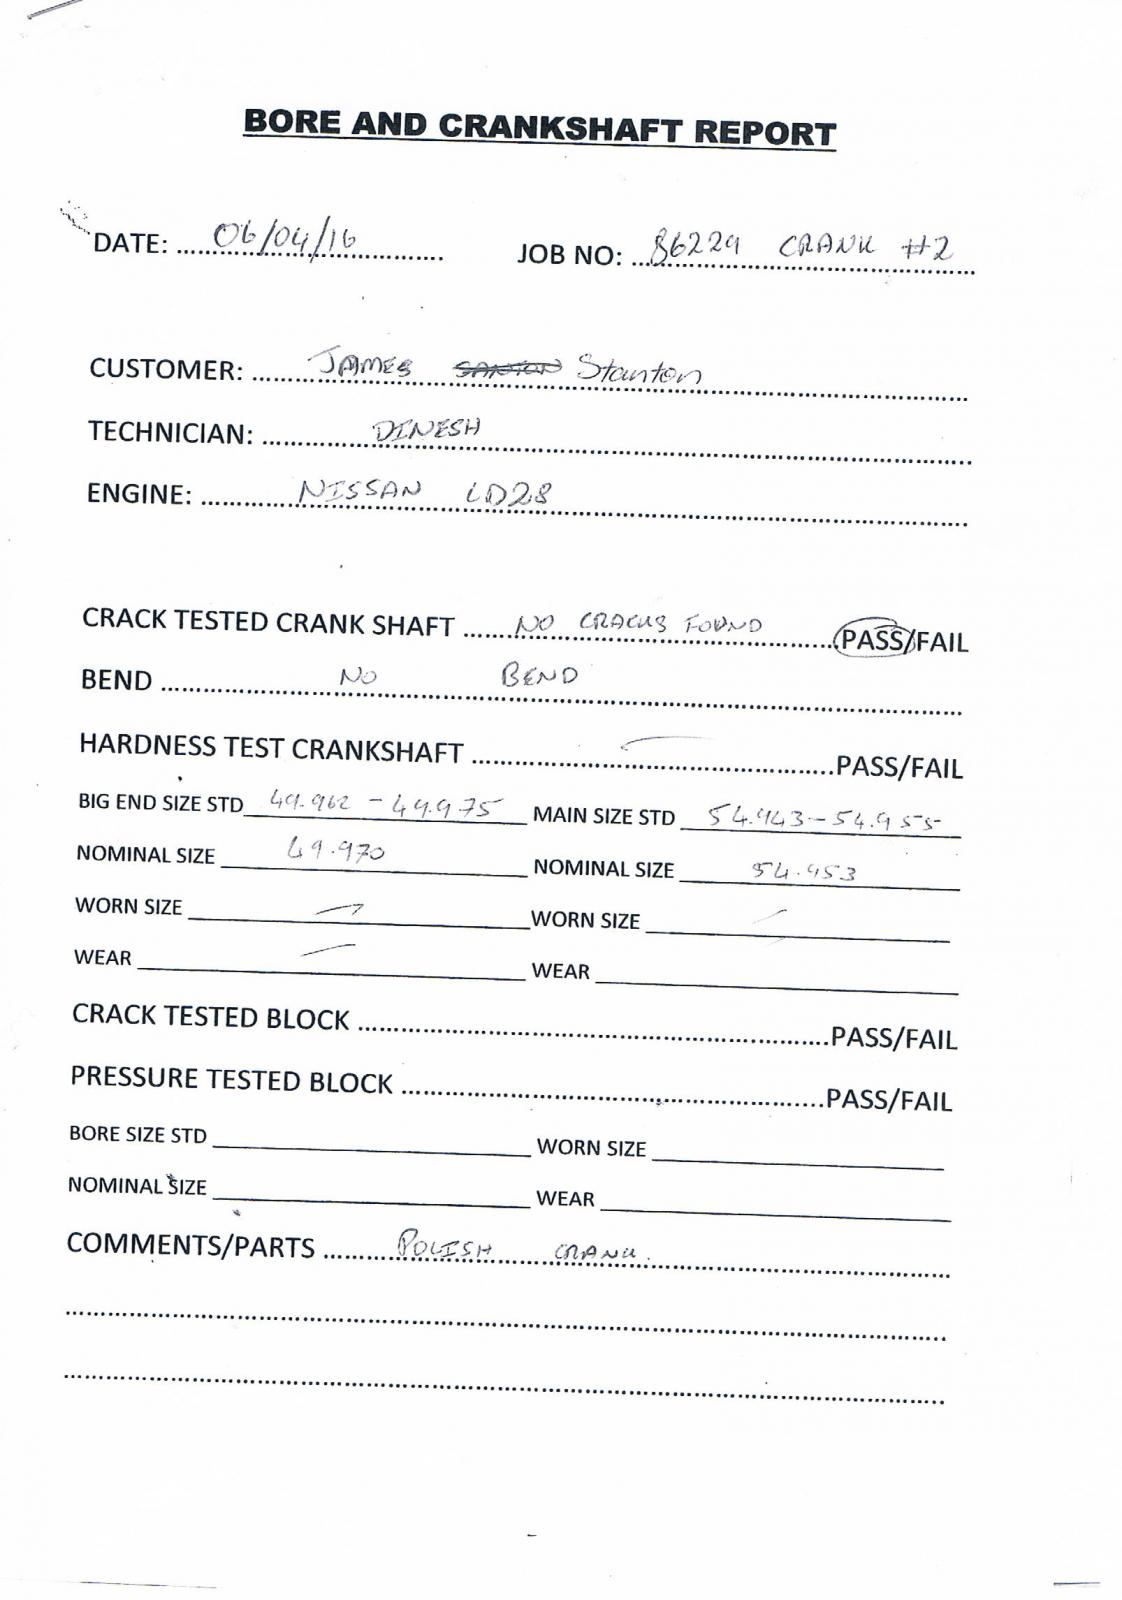 BORE AND CRANKSHAFT REPORT
DATE: 06/04/16 JOB NO: 86229 CRANK #2
CUSTOMER: JAMES Stanton
TECHNICIAN: DINESH
ENGINE: NISSAN LD28
CRACK TESTED CRANK SHAFT NO CRACKS FOUND PASS/FAIL
BEND NO BEND
HARDNESS TEST CRANKSHAFT PASS/FAIL
BIG END SIZE STD 49.962 - 49.975 MAIN SIZE STD 54.943 - 54.955
NOMINAL SIZE 49.970 NOMINAL SIZE 54.953
WORN SIZE WORN SIZE
WEAR WEAR
CRACK TESTED BLOCK PASS/FAIL
PRESSURE TESTED BLOCK PASS/FAIL
BORE SIZE STD WORN SIZE
NOMINAL SIZE WEAR
COMMENTS/PARTS POLISH CRANK.